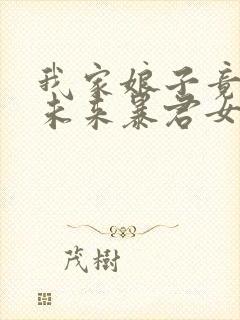 我家娘子竟
未来暴君女
茂樹